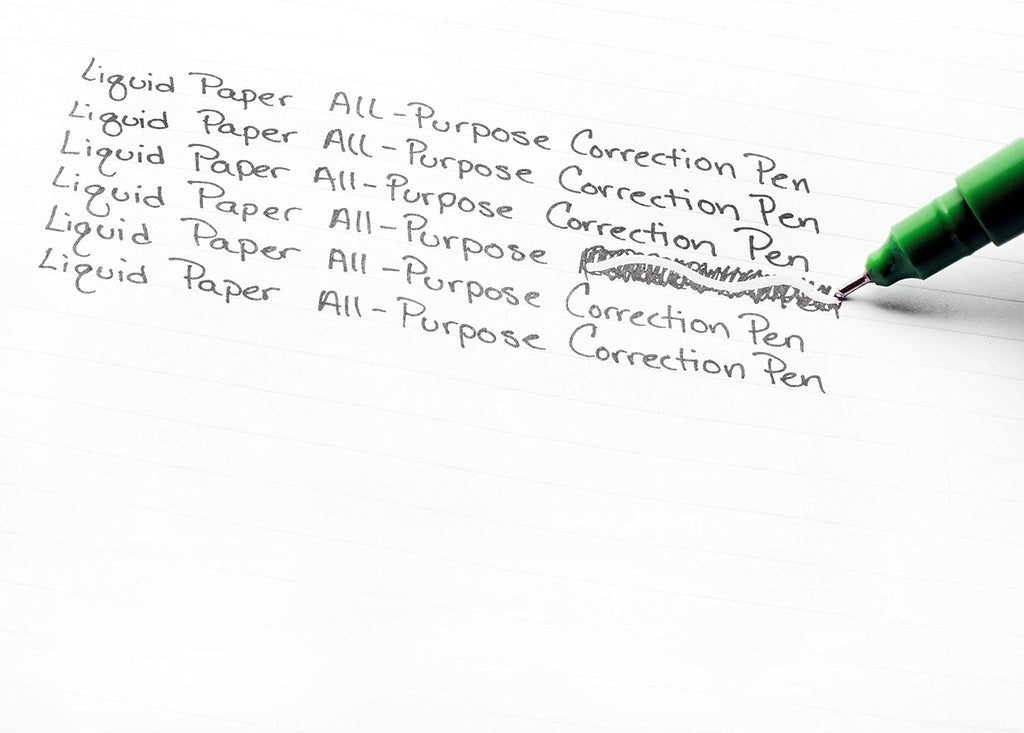 Liquid Paper All-Purpose Correction Pen
Liquid Paper All-Purpose Correction Pen
Liquid Paper All-Purpose Correction Pen
Liquid Paper All-Purpose
Liquid Paper All-Purpose Correction Pen
Liquid Paper All-Purpose Correction Pen